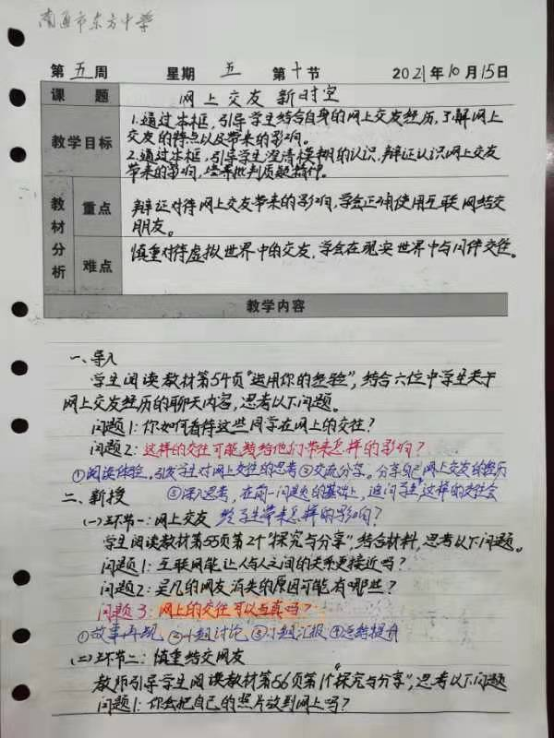 南通市东方中学
第五周 星期 五 第十节 2021年10月15日
课题 网上交友新时空
教学目标
1.通过本框，引导学生结合自身的网上交友经历，了解网上
交友的特点以及带来的影响。
2.通过本框，引导学生澄清模糊的认识，辩证认识网上交友
带来的影响，培养批判质疑精神。
教材分析
重点
辩证对待网上交友带来的影响，学会正确使用互联网结交
朋友。
难点
慎重对待虚拟世界中的交友，学会在现实世界中与同伴交往。
教学内容
一、导入
学生阅读教材第54页"运用你的经验"，结合六位中学生关于
网上交友经历的聊天内容，思考以下问题。
问题1：你如何看待这些同学在网上的交往？
问题2：这样的交往可能给他们带来怎样的影响？
①阅读体验，引发学生对网上交往的思考②交流分享。分享自己网上交友的经历
二、新授 ③深入思考，在前一问题的基础上，追问学生"这样的交往会
(一)环节一：网上交友 给学生带来怎样的影响？
学生阅读教材第55页第2个"探究与分享"，结合材料，思考以下问题。
问题1：互联网能让人与人之间的关系更接近吗？
问题2：吴凡的网友消失的原因可能有哪些？
问题3：网上的交往可以当真吗？
①故事再现 ②小组讨论 ③小组汇报 ④总结提升
(二)环节二：慎重结交网友
教师引导学生阅读教材第56页第1个"探究与分享"，思考以下问题
问题1：你会把自己的照片放到网上吗？